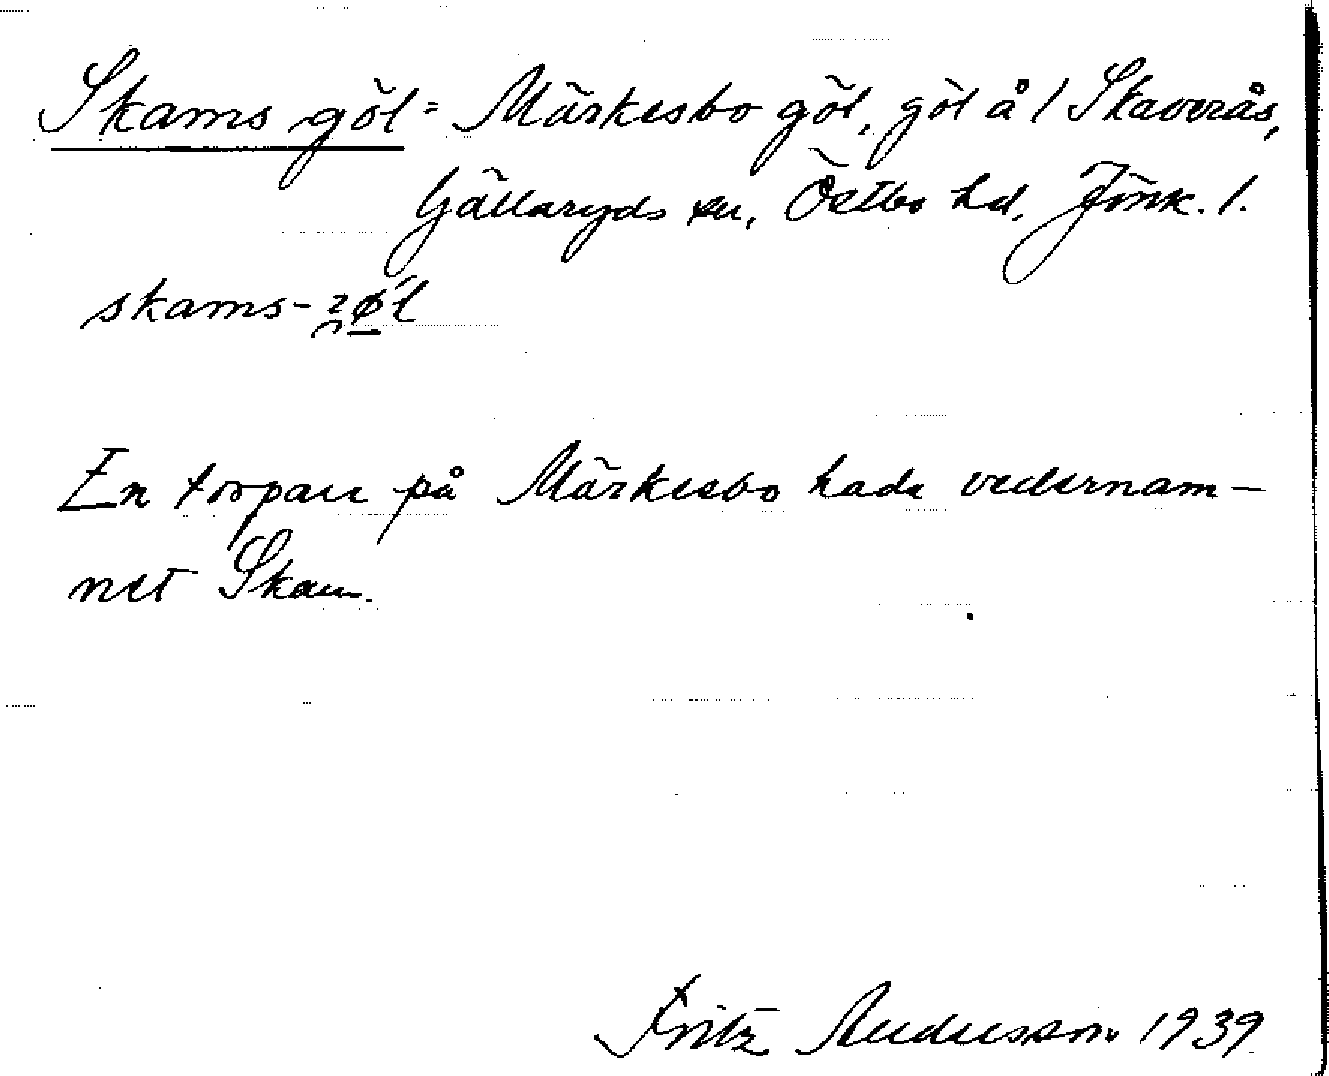 Skams göl = Märkesbo göl, göl å / Skaverås,
Gällaryds sn, Östbo hd, Jönk. l.
skams-
En torpare på Märkesbo hade vedernam-
net Skam.
Fritz Andersson 1939